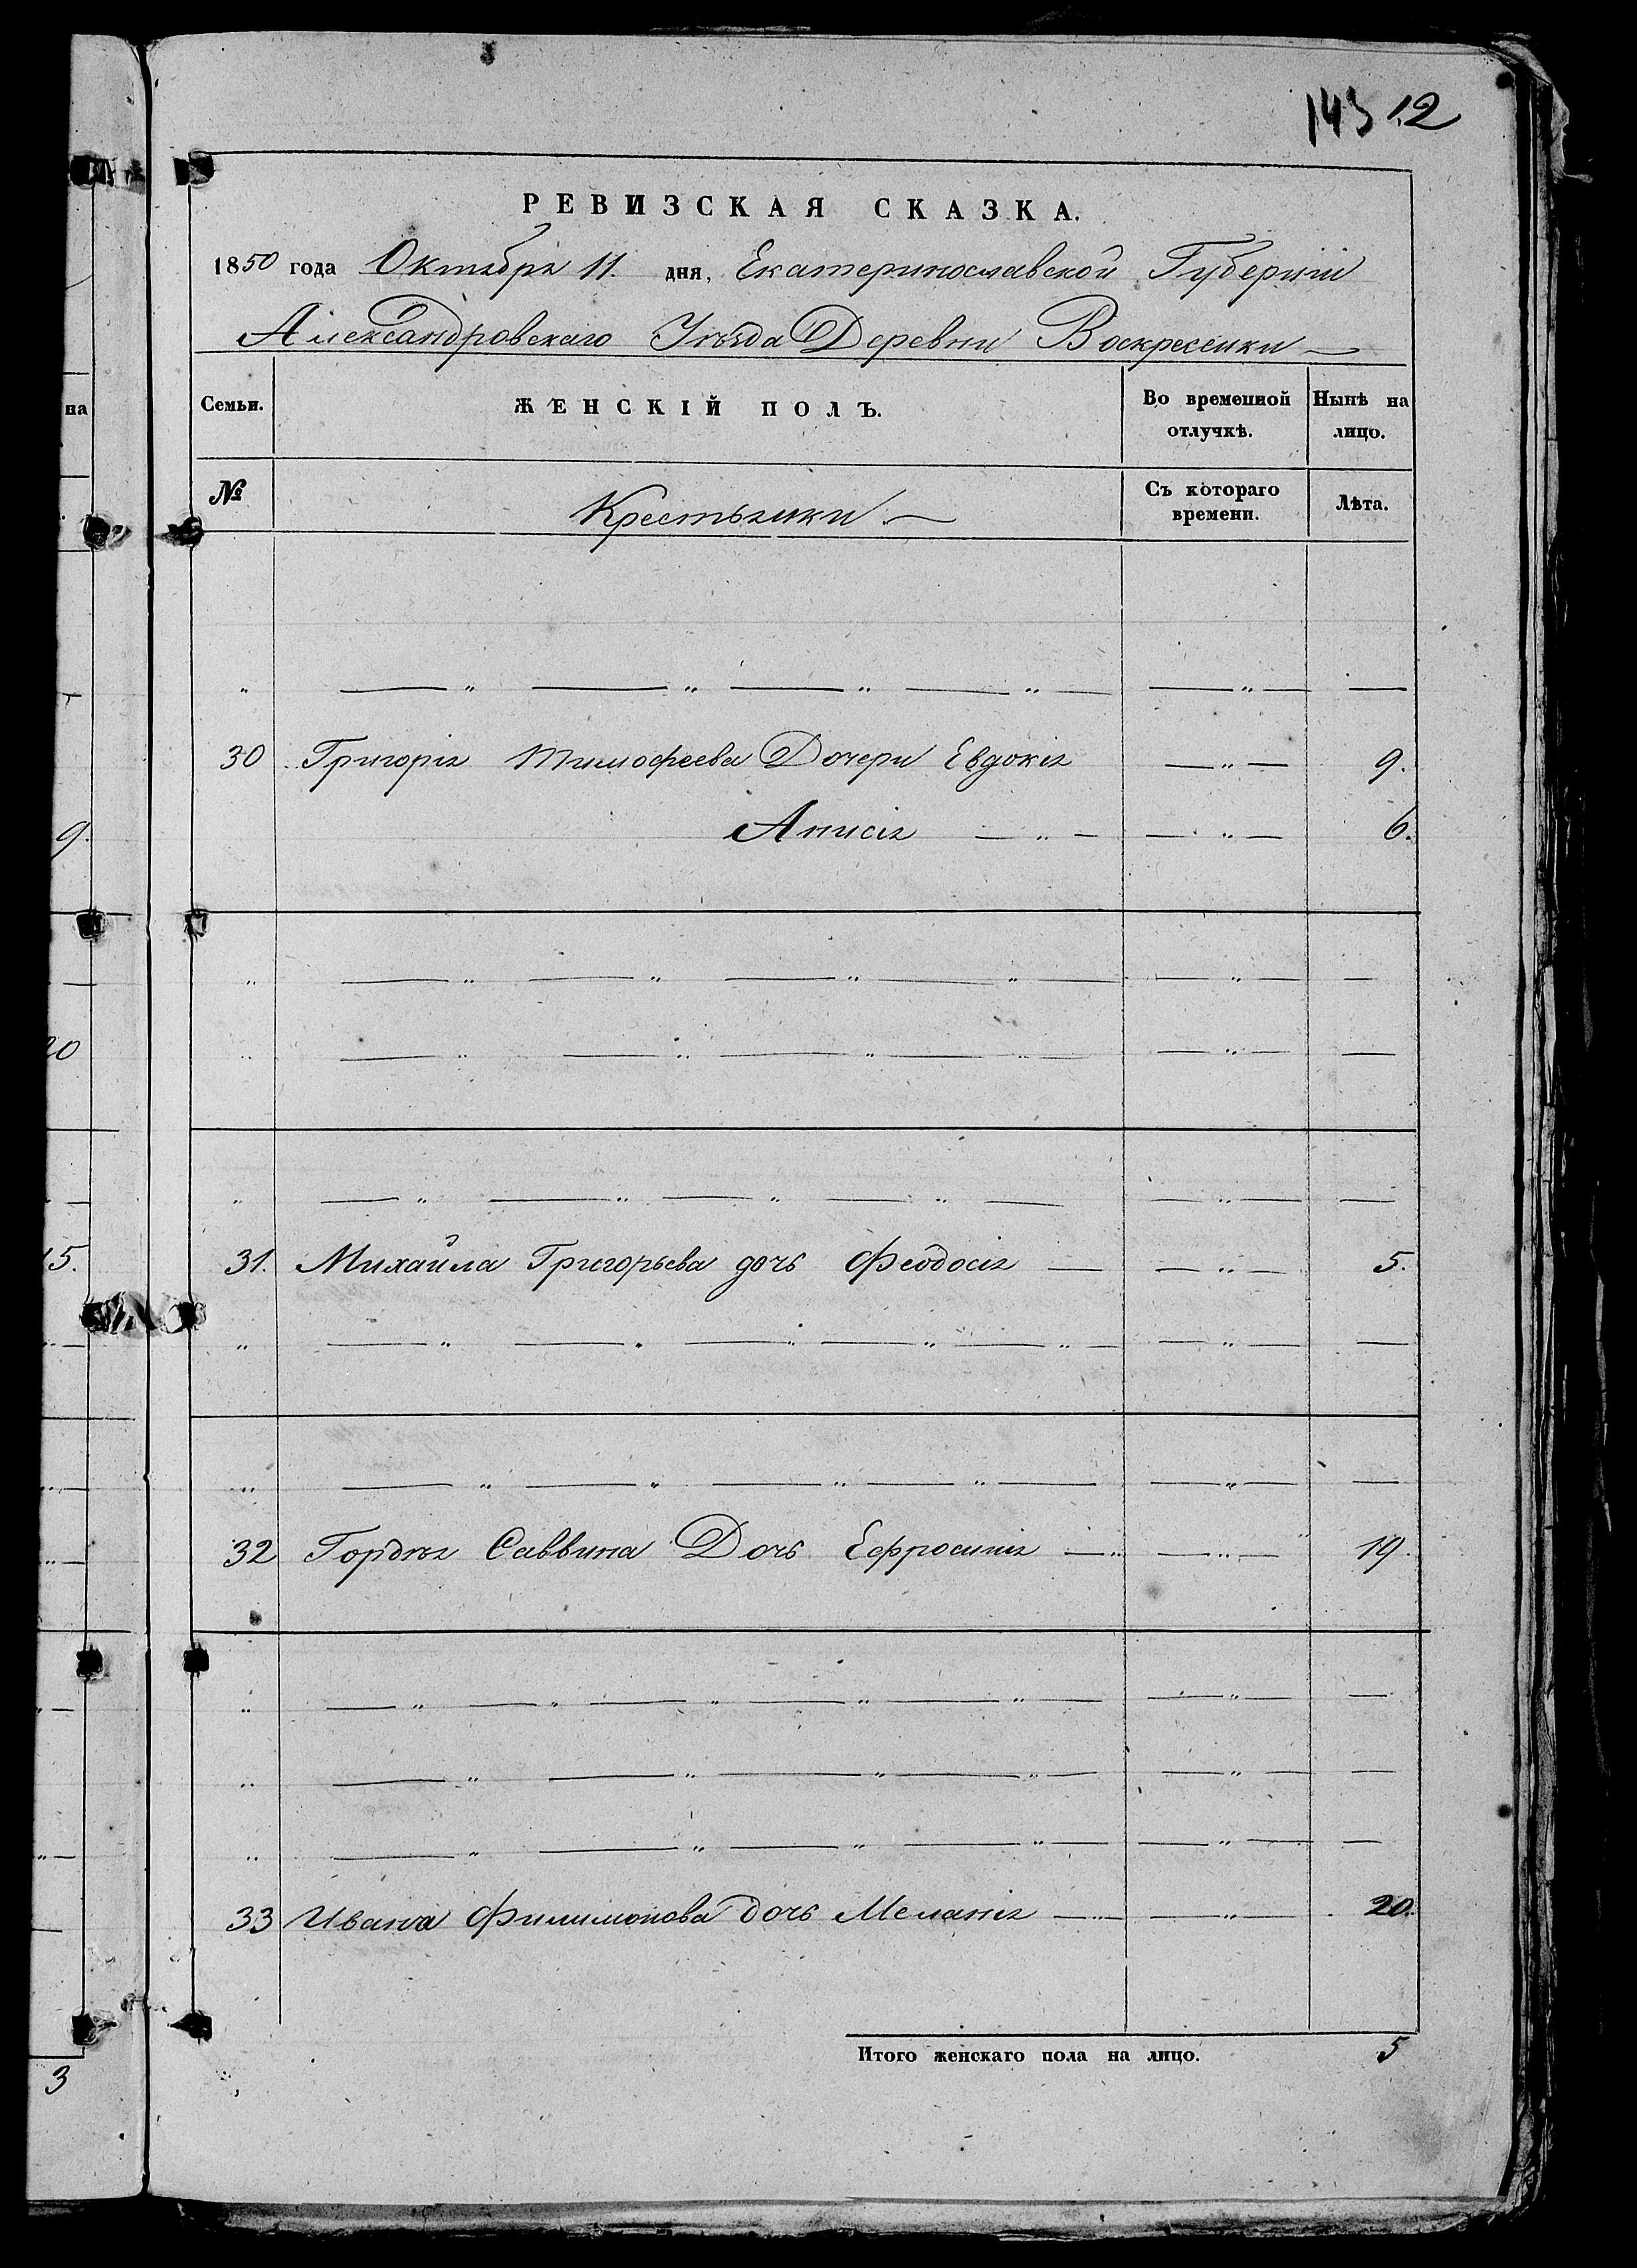 143 12
РЕВИЗСКАЯ СКАЗКА.
1850 года Октября 11. дня, Екатеринославской Губерніи
Александровскаго Уѣзда Деревни Воскресенки —
Семьи. ЖЕНСКІЙ ПОЛЪ. Во временной отлучкѣ. Нынѣ на лицо.
№ Крестьянки — Съ котораго времени. Лѣта.
30 Григорія Тимофеева Дочери Евдокія — " — 9.
Анисія — " — — " — 6.
31. Михайла Григорьева дочь Феодосія — — " — 5.
32 Гордѣя Саввина Дочь Ефросинія — " — " — 19.
33 Ивана Филимонова дочь Меланія — " — " — 20.
Итого женскаго пола на лицо. 5
на
9.
20
15.
3